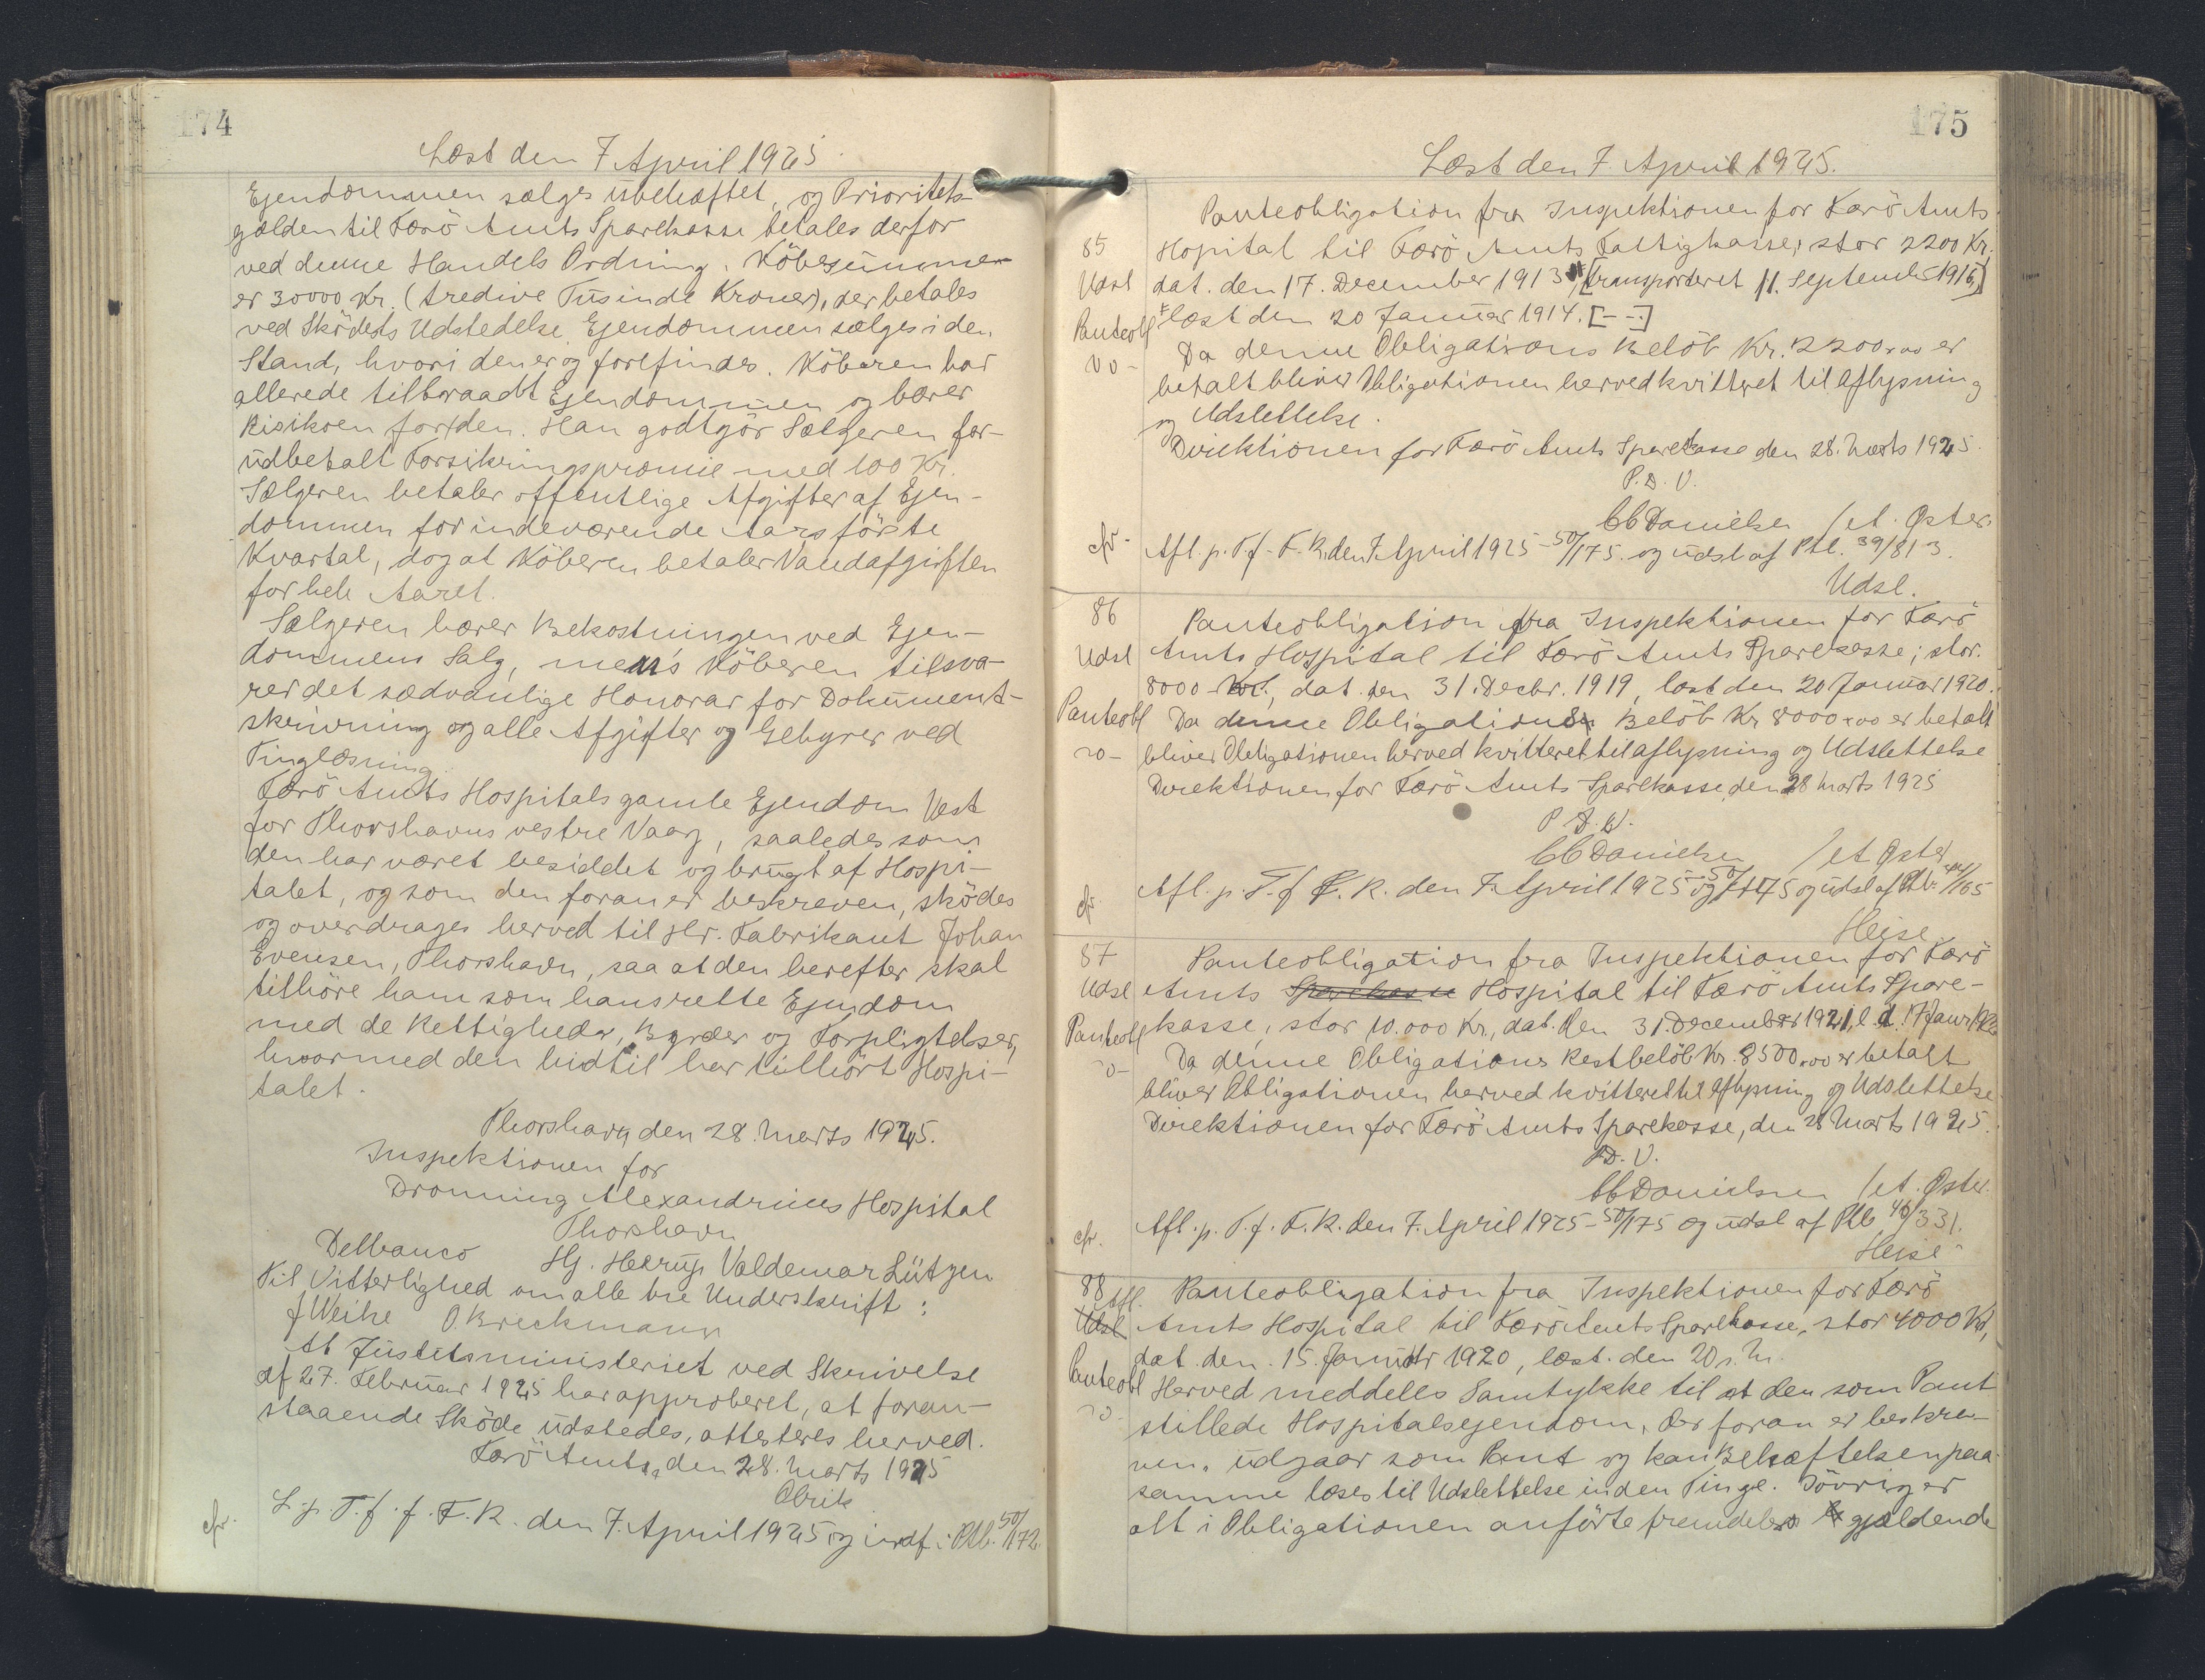 174
Læst den 7 April 1925.
Ejendommen sælges ubehæftet, og Prioritets-
gælden til Færö Amts Sparekasse betales derfor
ved denne Handels Ordning. Köbesummen
er 30000 Kr. (tredive Tusinde Kroner), der betales
ved Sködets Udstedelse. Ejendommen sælges i den
Stand, hvori den er og forefindes. Köberen har
allerede tiltraadt Ejendommen og bærer
Risikoen for den. Han godtgör Sælgeren for-
udbetalt Forsikringspræmie med 100 Kr.
Sælgeren betaler offentlige Afgifter af Ejen-
dommen for indeværende Aars förste
Kvartal, dog at Köberen betaler Vandafgiften
for hele Aaret.
Sælgeren bærer Bekostningen ved Ejen-
dommens Salg, mens Köberen tilsva-
rer det sædvanlige Honorar for Dokument-
skrivning og alle Afgifter og Gebyrer ved
Tinglæsning.
Færö Amts Hospitals gamle Ejendom Vest
for Thorshavns vestre Vaag, saaledes som
den har været besiddet og brugt af Hospi-
talet, og som den foran er beskreven, sködes
og overdrages herved til Hr. Fabrikant Johan
Evensen, Thorshavn, saa at den herefter skal
tilhöre ham som hans rette Ejendom
med de Rettigheder, Byrder og Forpligtelser,
hvormed den hidtil har tilhört Hospi-
talet.
Thorshavn den 28. Marts 1925.
Inspektionen for
Dronning Alexandrines Hospital
Thorshavn
Delbanco Hj. Hexrup Valdemar Lützen
Til Vitterlighed om alle tre Underskrift:
J Weihe O. Breckmann
At Justitsministeriet ved Skrivelse
af 27. Februar 1925 har approberet, at foran-
staaende Sköde udstedes, attesteres herved.
Færö Amt, den 28. Marts 1925
Olrik
cfr. L. p. T. f. f. F. R. den 7. April 1925 og indf. i Ptb. 50/172.
175
Læst den 7. April 1925.
Panteobligation fra Inspektionen for Færö Amts
85 Hopital til Færö Amts Fattigkasse, stor 2200 Kr.
Udsl dat. den 17. December 1913, [transporteret 11. September 1916,]
Panteobl læst den 20 Januar 1914. [- -]
Da denne Obligations Belöb Kr. 2200,00 er
betalt bliver Obligationen herved kvitteret til Aflysning
og Udslettelse.
Direktionen for Færö Amts Sparekasse den 28. Marts 1925.
P. D. V.
CC Danielsen / et. Öster.
cfr. Afl. p. T. f. F. R. den 7. April 1925 - 50/175. og udsl af Ptb. 39/813.
Udsl.
86 Panteobligation fra Inspektionen for Færö
Udsl Amts Hospital til Færö Amts Sparekasse; stor.
8000 Kr., dat. den 31. Decbr. 1919, læst den 20 Januar 1920.
Panteobl Da denne Obligations Belöb Kr 8000,00 er betalt
bliver Obligationen herved kvitteret til Aflysning og Udslettelse
Direktionen for Færö Amts Sparekasse, den 28 Marts 1925
P. D. V.
CC Danielsen / et Öster
cfr. Afl. p. T. f F. R. den 7. April 1925 - 50/175 og udsl af Ptb. /165
Heise
87 Panteobligation fra Inspektionen for Færö
Udsl Amts Sparekasse Hospital til Færö Amts Spare-
Panteobl kasse, stor 10.000 Kr., dat. den 31. December 1921, l. d. 17 Janr.
Da denne Obligations Restbelöb Kr. 8500,00 er betalt
bliver Obligationen herved kvitteret til Aflysning og Udslettelse
Direktionen for Færö Amts Sparekasse, den 28 Marts 1925.
P. D. V.
CC Danielsen / et. Öster.
cfr. Afl. p. T. f. F. R. den 7. April 1925 - 50/175 og udsl af Ptb 46/331.
Heise
88 Afl. Panteobligation fra Inspektionen for Færö
Udsl Amts Hospital til Færö Amts Sparekasse, stor 4000 Kr,
dat. den. 15. Januar 1920, læst. den 20 s. M.
Panteobl Herved meddeles Samtykke til at den som Pant
stillede Hospitalsejendom, der foran er beskre-
ven, udgaar som Pant og kan Behæftelsen paa
samme læses til Udslettelse inden Tinge. Iövrig er
alt i Obligationen anförte fremdeles gjældende